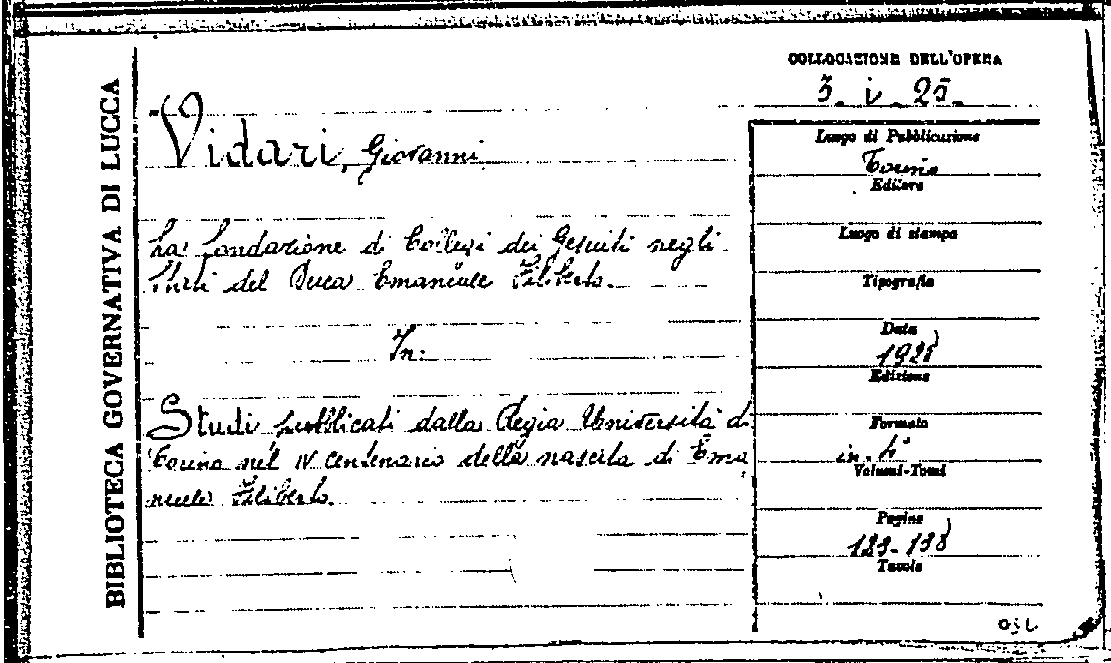 BIBLIOTECA GOVERNATIVA DI LUCCA
COLLOCAZIONE DELL'OPERA
3. i. 25.
Vidari, Giovanni
La fondazione di Collegi dei Gesuiti negli
Stati del Duca Emanuele Filiberto.
In:
Studi pubblicati dalla Regia Università di
Torino nel IV centenario della nascita di Ema
nuele Filiberto.
Luogo di Pubblicazione
Torino
Editore
Luogo di stampa
Tipografia
Data
1928
Edizione
Formato
in-4°
Volumi-Tomi
Pagine
Tavole